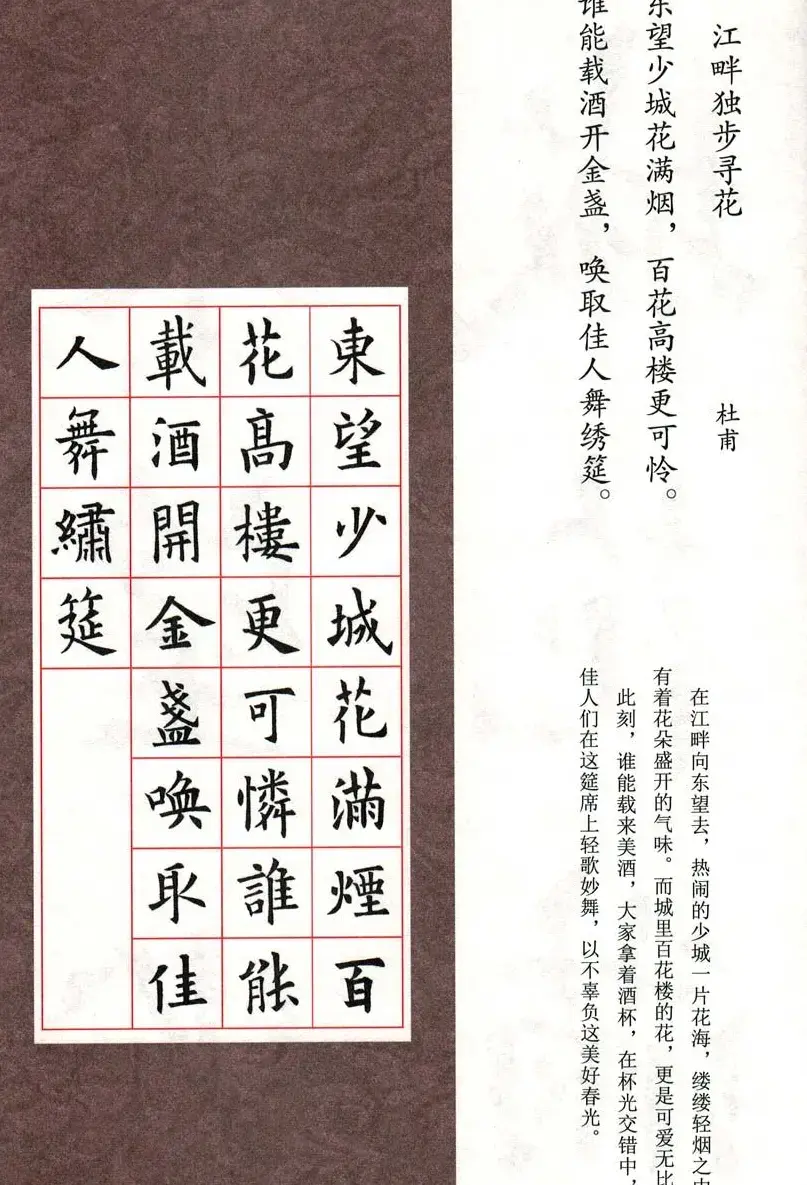 江畔独步寻花
杜甫
东望少城花满烟，百花高楼更可怜。
谁能载酒开金盏，唤取佳人舞绣筵。
在江畔向东望去，热闹的少城一片花海，缕缕轻烟之中
有着花朵盛开的气味。而城里百花楼的花，更是可爱无比
此刻，谁能载来美酒，大家拿着酒杯，在杯光交错中，
佳人们在这筵席上轻歌妙舞，以不辜负这美好春光。
東望少城花滿煙百
花高樓更可憐誰能
載酒開金盞喚取佳
人舞繡筵